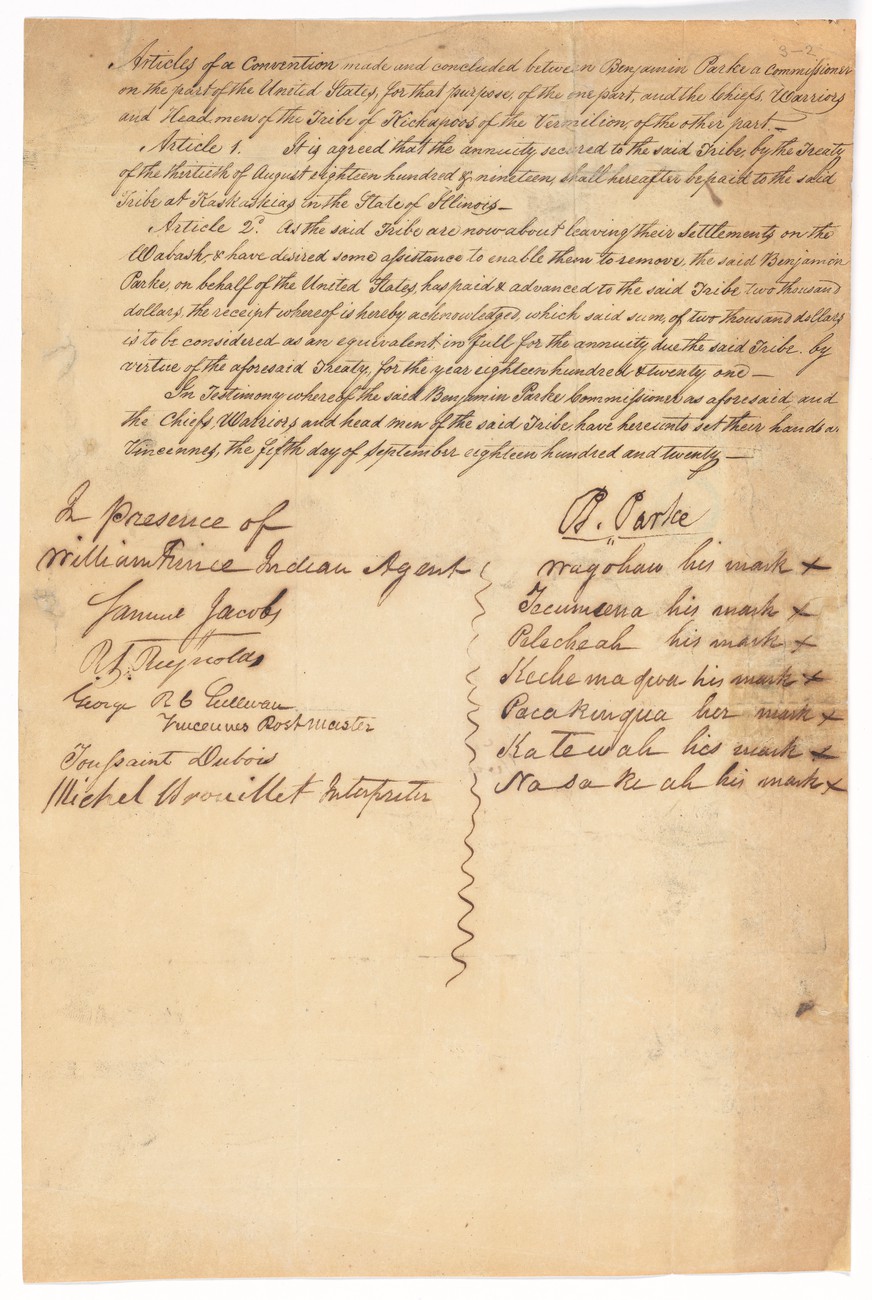 3-2
Articles of a Convention made and concluded between Benjamin Parke a Commissioner
on the part of the United States, for that purpose, of the one part, and the Chiefs, Warriors
and Head men of the Tribe of Kickapoos of the Vermilion, of the other part.—
Article 1. It is agreed that the annuity secured to the said Tribe, by the Treaty
of the thirtieth of August eighteen hundred & nineteen, shall hereafter be paid to the said
Tribe at Kaskaskias in the State of Illinois—
Article 2d. As the said Tribe are now about leaving their Settlements on the
Wabash, & have desired some assistance to enable them to remove, the said Benjamin
Parke, on behalf of the United States, has paid & advanced to the said Tribe two thousand
dollars, the receipt whereof is hereby acknowledged, which said sum, of two thousand dollars
is to be considered as an equivalent in full for the annuity due the said Tribe. by
virtue of the aforesaid Treaty, for the year eighteen hundred & twenty one—
In Testimony whereof the said Benjamin Parke Commissioner as aforesaid, and
the Chiefs, Warriors and head men of the said Tribe, have hereunto set their hands a
Vincennes, the fifth day of September eighteen hundred and twenty—
In presence of
William Prince Indian Agent
Samuel Jacobs
R. Reynolds
George R C Sullivan
Vincennes Post master
Toussaint Dubois
Michel Brouillet Interpreter
B. Parke
Wagohaw his mark x
Tecumsena his mark x
Pelecheah his mark x
Kechemaqua his mark x
Pacakinqua her mark x
Katewah his mark x
Nasakeah his mark x